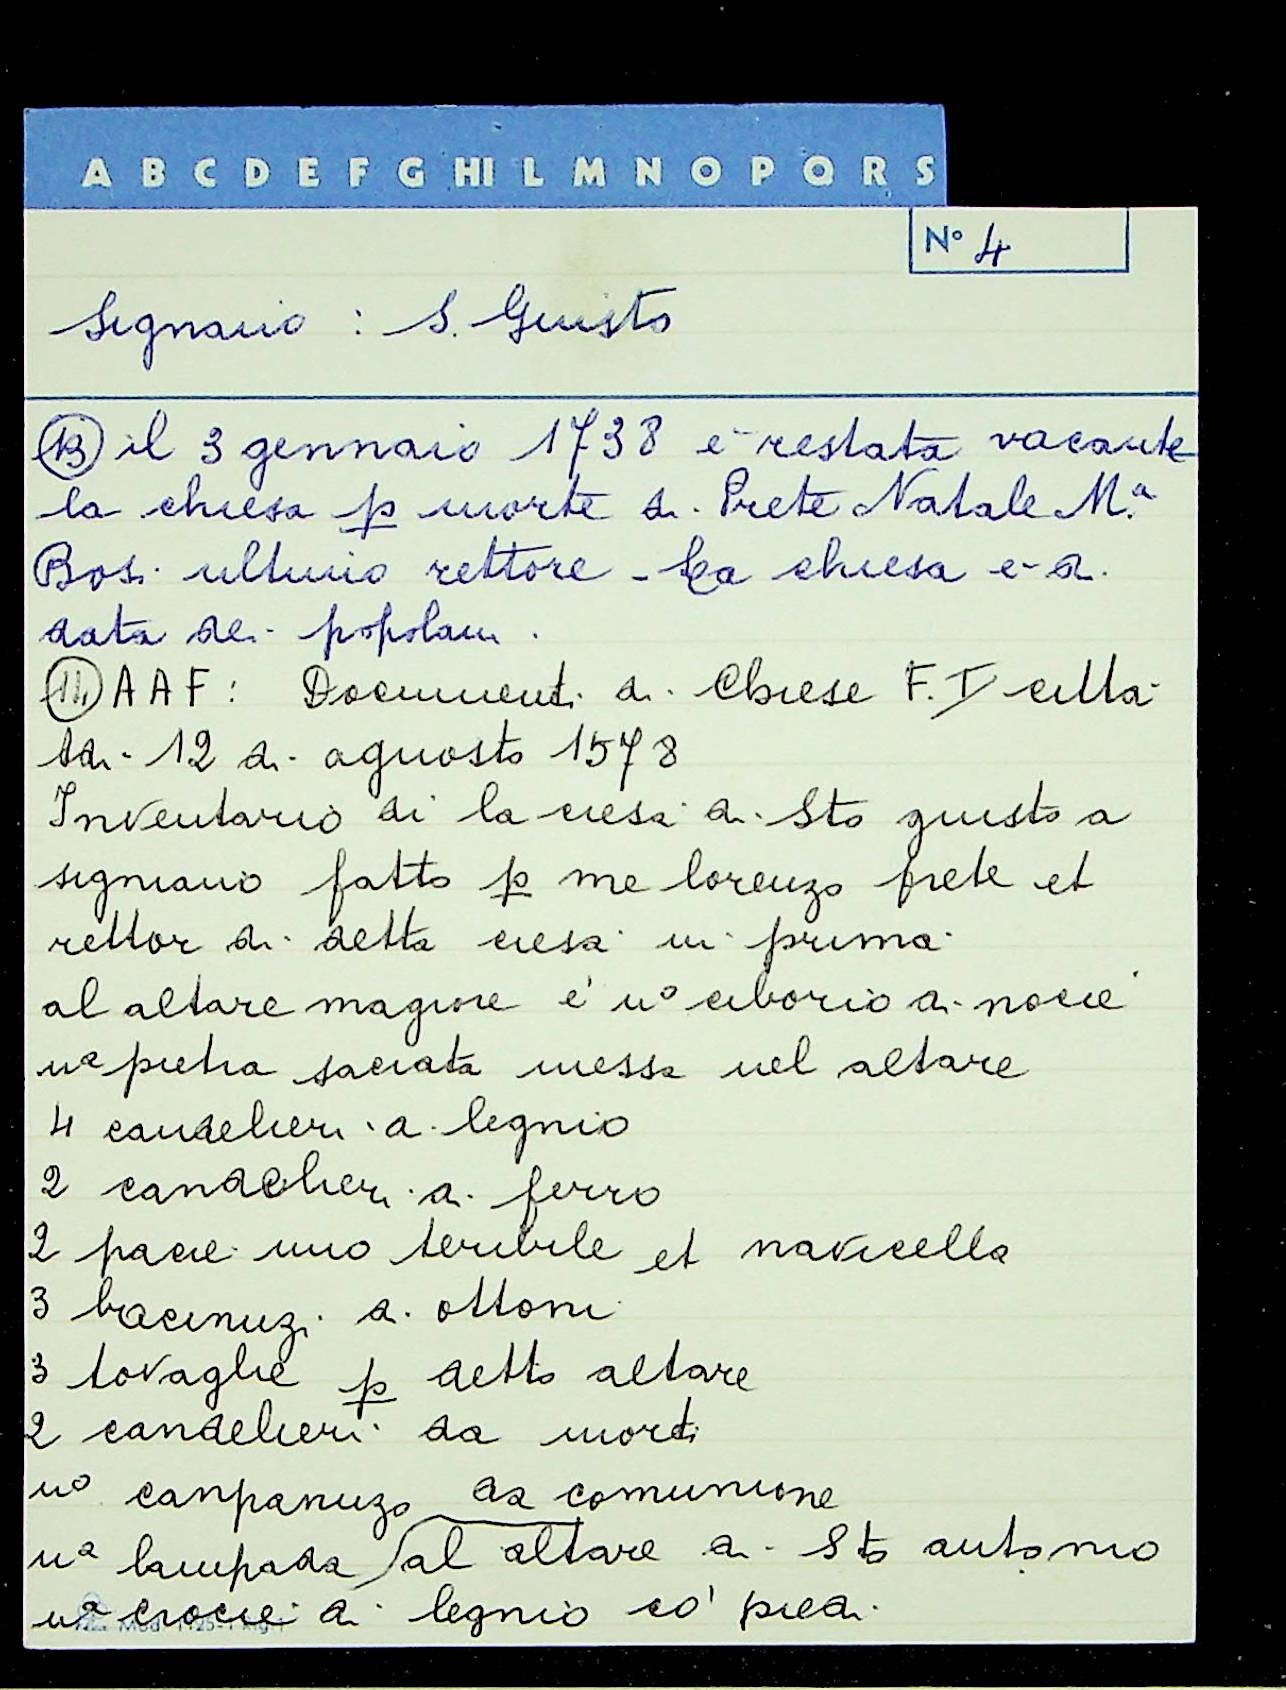 A B C D E F G HI L M N O P Q R S
N° 4
Signano : S. Giusto
(13) il 3 gennaio 1738 è restata vacante
la chiesa p morte di Prete Natale M.ª
Bosi ultimo rettore - La chiesa è di
data dei popolani.
(11) A A F: Documenti di Chiese F. I citta
di 12 di aguosto 1578
Inventario di la ciesa di Sto giusto a
signiano fatto p me lorenzo prete et
rettor di detta ciesa in prima
al altare magiore e' uº ciborio di nocie
uª pietra saciata messa nel altare
4 candelieri di legnio
2 candelieri di ferro
2 pacie uno teribile et navicella
3 bacinuzi di ottoni
3 tovaglie p detto altare
2 candelieri da morti
uº canpanuzo da comunione
uª lampada al altare di Sto antonio
uª crocie di legnio co' piedi